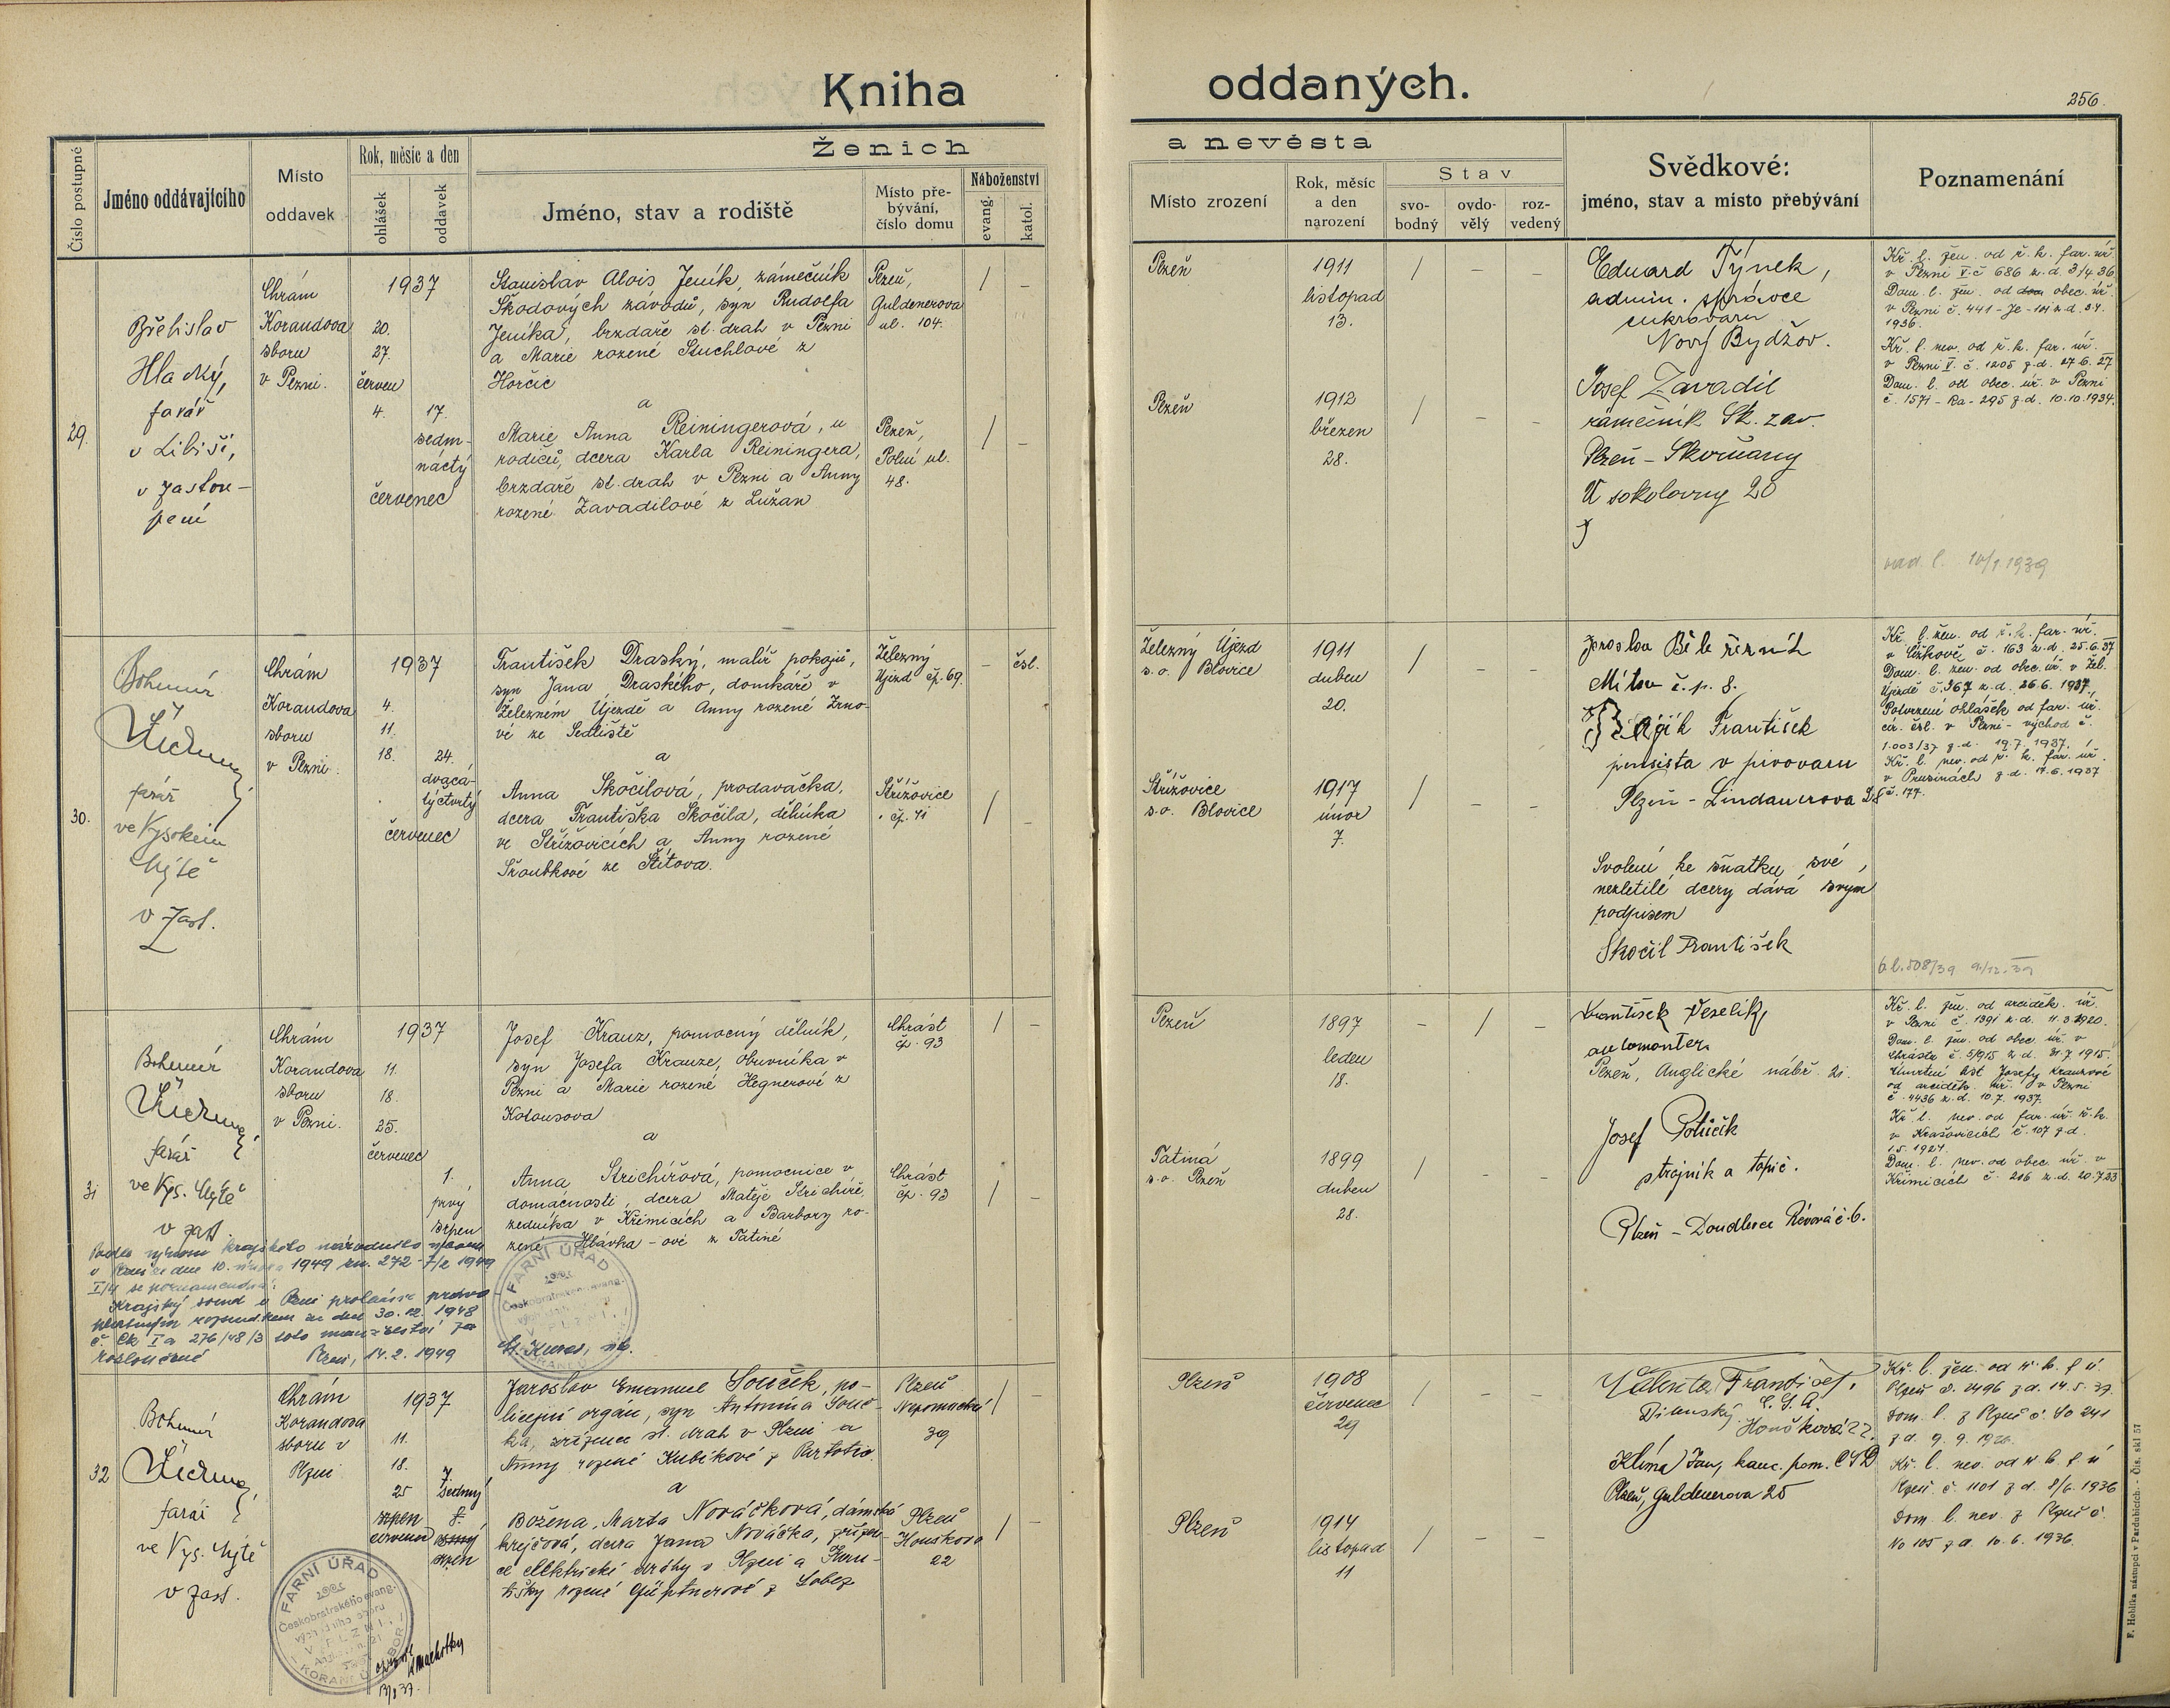 Kniha
oddaných.
256.
Číslo postupné
Jméno oddávajícího
Místo
oddavek
Rok, měsíc a den
ohlášek
oddavek
Ženich
Jméno, stav a rodiště
Místo pře-
bývání,
číslo domu
Náboženství
evang.
katol.
a nevěsta
Místo zrození
Rok, měsíc
a den
narození
Stav
svo-
bodný
ovdo-
vělý
roz-
vedený
Svědkové:
jméno, stav a místo přebývání
Poznamenání
29.
Břetislav
Hladký,
farář
v Libiši,
v zastou-
pení
Chrám
Korandova
sboru
v Plzni.
1937
20.
27.
červen
4.
17.
sedm-
náctý
červenec
Stanislav Alois Jeník, zámečník
Škodových závodů, syn Rudolfa
Jeníka, brzdaře st. drah v Plzni
a Marie rozené Stuchlové z
Horčic
a
Marie Anna Reiningerová, u
rodičů, dcera Karla Reiningera,
brzdaře st. drah v Plzni a Anny
rozené Zavadilové z Lužan
Plzeň,
Guldenerova
ul. 104.
/ –
Plzeň,
Polní ul.
48.
/ –
Plzeň
1911
listopad
13.
/ – –
Plzeň
1912
březen
28.
/ – –
Eduard Týnek,
admin. správce
cukrovaru
Nový Bydžov.
Josef Zavadil
zámečník Šk. zav.
Plzeň – Skvrňany
U sokolovny 20
Kř. l. žen. od ř. k. far. úř.
v Plzni V. č 686 z. d. 3/4 36
Dom. l. žen. od obec. úř.
v Plzni č. 441 – Je –
1936.
Kř. l. nev. od ř. k. far. úř.
v Plzni V. č. 1205 z. d. 27. 6. 27
Dom. l. od obec. úř. v Plzni
č. 1571 – Ra – 295 z. d. 10. 10. 1934.
30.
Bohumír
farář
ve Vysokém
Mýtě
v zast.
Chrám
Korandova
sboru
v Plzni.
1937
4.
11.
18.
24.
dvacá-
týčtvrtý
červenec
František Draský, malíř pokojů,
syn Jana Draského, domkáře v
Železném Újezdě a Anny rozené Zrno-
vé ze Sedliště
a
Anna Skočilová, prodavačka,
dcera Františka Skočila, dělníka
ve Střížovicích a Anny rozené
Šroubkové ze Štítova.
Železný
Újezd čp. 69.
– čsl.
Střížovice
čp. 41
/ –
Železný Újezd
s. o. Blovice
1911
duben
20.
/ – –
Střížovice
s. o. Blovice
1917
únor
7.
/ – –
Jaroslav
Mítov č. p. 8.
František
pensista v pivovaru
Plzeň – Lindauerova 28
Svolení ke sňatku své
nezletilé dcery dává svým
podpisem
Skočil František
Kř. l. žen. od ř. k. far. úř.
v č. 163 z. d. 25. 6. 37
Dom. l. žen. od obec. úř. v Žel.
Újezdě č. 367 z. d. 26. 6. 1937.
Potvrzení ohlášek od far. úř.
cír. čsl. v Plzni – východ č.
1.003/37 z. d. 19. 7. 1937.
Kř. l. nev. od ř. k. far. úř.
v Prusinách z. d. 17. 6. 1937
č. 177.
31
Bohumír
farář
ve Vys. Mýtě
v zast.
Chrám
Korandova
sboru
v Plzni.
1937
11.
18.
25.
červenec
1.
prvý
srpen
Josef Krauz, pomocný dělník,
syn Josefa Krauze, obuvníka v
Plzni a Marie rozené Hegnerové z
Kotousova
a
Anna Strichířová, pomocnice v
domácnosti, dcera Matěje Strichíře,
zedníka v Křimicích a Barbory ro-
zené Hlávka – ové z Tatiné
Chrást
čp. 93
/ –
Chrást
čp. 93
/ –
Plzeň
1897
leden
18.
– / –
Tatiná
s. o. Plzeň
1899
duben
28.
/ – –
František Veselík,
automontér
Plzeň, Anglické nábř. 21.
Josef Potůčik
strojník a topič.
Plzeň – Doudlevce Révová č. 6.
Kř. l. žen. od arciděk. úř.
v Plzni č. 1391 z. d. 11. 3. 1920.
Dom. l. žen. od obec. úř. v
Chrástu č. 5/915 z. d. 31. 7. 1915.
Úmrtní list Josefy Krauzové
od arciděk. úř. v Plzni
č. 4436 z. d. 10. 7. 1937.
Kř. l. nev. od far. úř. ř. k.
v Krašovicích č. 107 z. d.
1. 5. 1927.
Dom. l. nev. od obec. úř. v
Křimicích č. 206 z. d. 20. 7. 33
Podle výnosu krajského národního výboru
v Plzni ze dne 10. 1949 zn. 272 – 7/2 1949
I/4 se poznamenává:
Krajský soud v Plzni prohlásil
rozsudkem ze dne 30. 12. 1948
č. Ck I a 276/48/3 toto manželství za
rozloučené
Plzni, 14. 2. 1949
FARNÍ ÚŘAD
Českobratrského evang.
V PLZNI
32
Bohumír
farář
ve Vys. Mýtě
v zast.
Chrám
Korandova
sboru v
Plzni
1937
11.
18.
25
srpen
červenec
7.
sedmý
srpen
Jaroslav Emanuel Souček, po-
licejní orgán, syn Antonína Souč-
ka, zřízence st. drah v Plzni a
Anny rozené Kubíkové z
a
Božena Marta Nováčková, dámská
krejčová, dcera Jana Nováčka,
elektrické dráhy v Plzni a Fran-
tišky rozené z Lobez
Plzeň
Nepomucká
39
/ –
Plzeň
Houškova
22
/ –
Plzeň
1908
červenec
29
/ – –
Plzeň
1914
listopad
11
/ – –
Valenta František,
Houšková 22.
Klíma Jan, kanc. pom. ČSD
Plzeň, Guldenerova 25
Kř. l. žen. od ř. k. f. ú
Plzeň č. 2496 z d. 14. 5. 37.
Dom. l. z Plzně č. So 241
z d. 9. 9. 1926.
Kř. l. nev. od ř. k. f. ú
Plzeň č. 1101 z d. 8/6. 1936
Dom. l. nev. z Plzně č.
No 105 z d. 10. 6. 1936.
FARNÍ ÚŘAD
Českobratrského evang.
V PLZNI
F. Hoblíka nástupci v Pardubicích. - Čís. skl 57